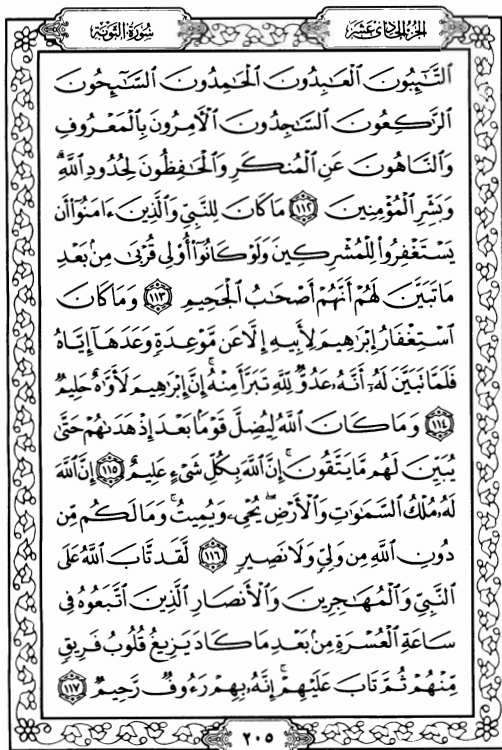 الجزء الحادي عشر
سورة التوبة
ٱلتَّٰٓئِبُونَ ٱلْعَٰبِدُونَ ٱلْحَٰمِدُونَ ٱلسَّٰٓئِحُونَ
ٱلرَّٰكِعُونَ ٱلسَّٰجِدُونَ ٱلْءَامِرُونَ بِٱلْمَعْرُوفِ
وَٱلنَّاهُونَ عَنِ ٱلْمُنكَرِ وَٱلْحَٰفِظُونَ لِحُدُودِ ٱللَّهِ ۗ
وَبَشِّرِ ٱلْمُؤْمِنِينَ ١١٢ مَا كَانَ لِلنَّبِيِّ وَٱلَّذِينَ ءَامَنُوٓا۟ أَن
يَسْتَغْفِرُوا۟ لِلْمُشْرِكِينَ وَلَوْ كَانُوٓا۟ أُو۟لِى قُرْبَىٰ مِنۢ بَعْدِ
مَا تَبَيَّنَ لَهُمْ أَنَّهُمْ أَصْحَٰبُ ٱلْجَحِيمِ ١١٣ وَمَا كَانَ
ٱسْتِغْفَارُ إِبْرَٰهِيمَ لِأَبِيهِ إِلَّا عَن مَّوْعِدَةٍ وَعَدَهَآ إِيَّاهُ
فَلَمَّا تَبَيَّنَ لَهُۥٓ أَنَّهُۥ عَدُوٌّ لِّلَّهِ تَبَرَّأَ مِنْهُ ۚ إِنَّ إِبْرَٰهِيمَ لَأَوَّٰهٌ حَلِيمٌ
١١٤ وَمَا كَانَ ٱللَّهُ لِيُضِلَّ قَوْمًۢا بَعْدَ إِذْ هَدَىٰهُمْ حَتَّىٰ
يُبَيِّنَ لَهُم مَّا يَتَّقُونَ ۚ إِنَّ ٱللَّهَ بِكُلِّ شَىْءٍ عَلِيمٌ ١١٥ إِنَّ ٱللَّهَ
لَهُۥ مُلْكُ ٱلسَّمَٰوَٰتِ وَٱلْأَرْضِ ۖ يُحْىِۦ وَيُمِيتُ ۚ وَمَا لَكُم مِّن
دُونِ ٱللَّهِ مِن وَلِىٍّ وَلَا نَصِيرٍ ١١٦ لَّقَد تَّابَ ٱللَّهُ عَلَى
ٱلنَّبِىِّ وَٱلْمُهَٰجِرِينَ وَٱلْأَنصَارِ ٱلَّذِينَ ٱتَّبَعُوهُ فِى
سَاعَةِ ٱلْعُسْرَةِ مِنۢ بَعْدِ مَا كَادَ يَزِيغُ قُلُوبُ فَرِيقٍ
مِّنْهُمْ ثُمَّ تَابَ عَلَيْهِمْ ۚ إِنَّهُۥ بِهِمْ رَءُوفٌ رَّحِيمٌ ١١٧
٢٠٥